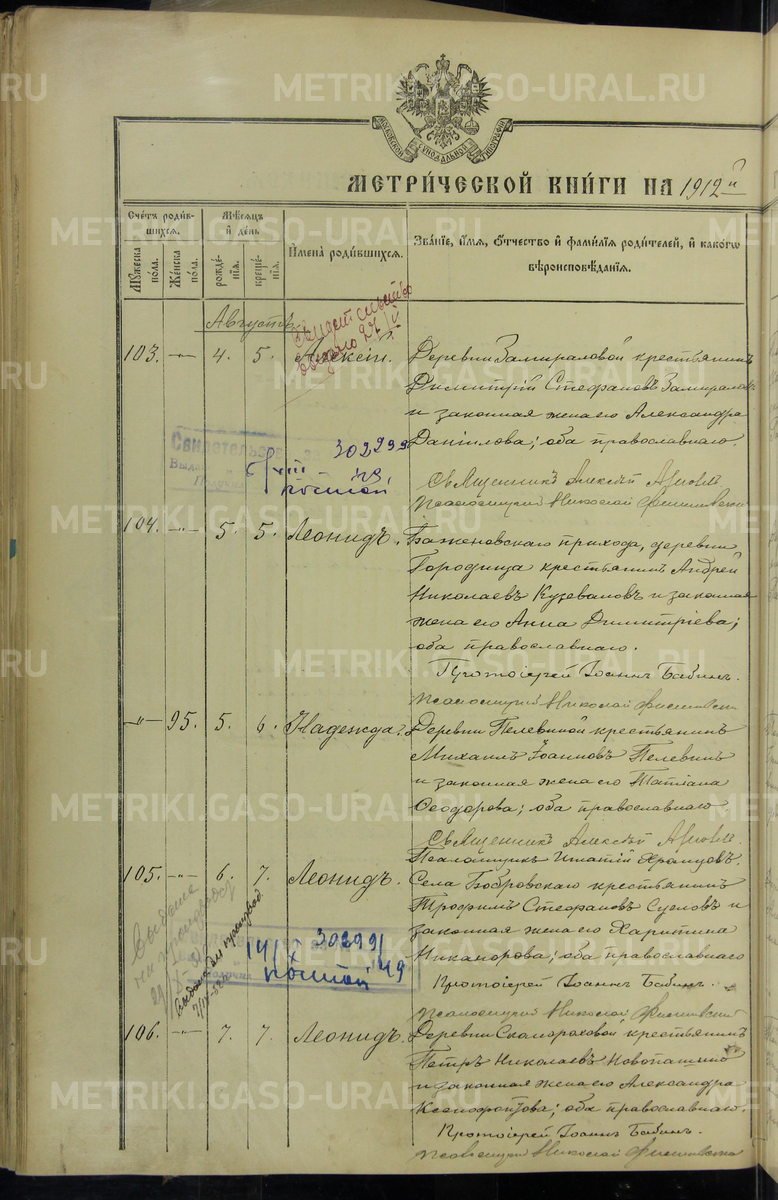 METRIKI.GASO-URAL.RU
МОСКОВСКОЙ СѴНОДАЛЬНОЙ ТИПОГРАФІИ
МЕТРИ́ЧЕСКОЙ КНИ́ГИ НА 1912й
Сче́тъ роди́вшихся.
Мꙋ́жеска пола.
Же́нска пола.
Мѣ́сяцъ и҆ де́нь
рожде́нїѧ.
креще́нїѧ.
И҆мена̀ роди́вшихся.
Зва́нїе, и҆́мѧ, ѻ҆́тчество и҆ фами́лїѧ роди́телей, и҆ како́гѡ вѣроисповѣ́данїѧ.
Августъ
103. -"- 4. 5. Алексій.
Деревни Замираловой крестьянинъ
Димитрій Стефановъ Замираловъ
и законная жена его Александра
Даніилова; оба православнаго.
Священникъ Алексѣй
Псаломщикъ Николай
302299
почтой
104. -"- 5. 5. Леонидъ.
Баженовскаго прихода, деревни
Городища крестьянинъ Андрей
Николаевъ Кузеваловъ и законная
жена его Анна Димитріева;
оба православнаго.
Протоіерей Іоаннъ Бабинъ.
Псаломщикъ Николай
-"- 95. 5. 6. Надежда.
Деревни Пелевиной крестьянинъ
Михаилъ Іоанновъ Пелевинъ
и законная жена его Татіана
Ѳеодорова; оба православнаго.
Священникъ Алексѣй
Псаломщикъ Игнатій Храмцовъ.
105. -"- 6. 7. Леонидъ.
Села Бобровскаго крестьянинъ
Трофимъ Стефановъ Сусловъ и
законная жена его Харитина
Никанорова; оба православнаго
Протоіерей Іоаннъ Бабинъ.
Псаломщикъ Николай
302991
почтой 49
106. -"- 7. 7. Леонидъ.
Деревни Скомороховой крестьянинъ
Петръ Николаевъ Новопашинъ
и законная жена его Александра
Ксенофонтова; оба православнаго.
Протоіерей Іоаннъ Бабинъ.
Псаломщикъ Николай